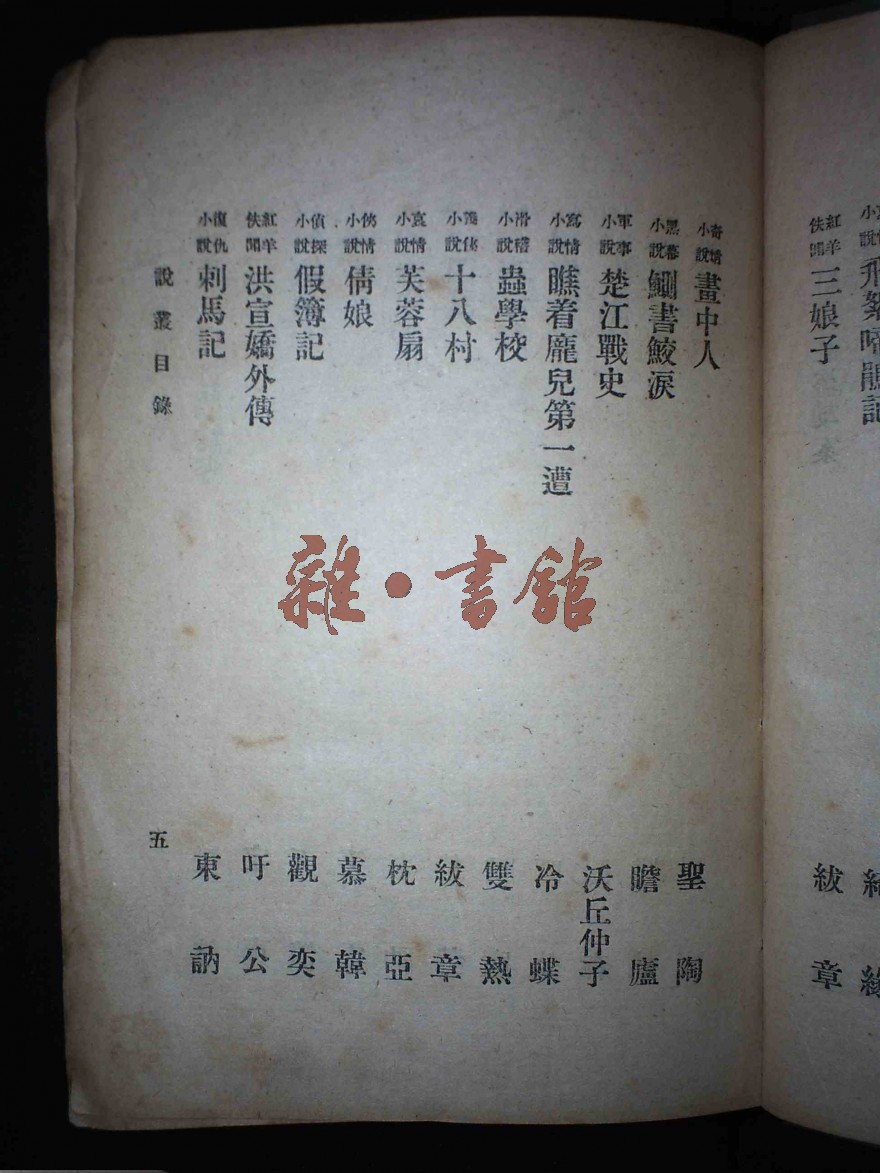 紅羊佚聞 三娘子 紱章
奇情小說 畫中人 聖陶
黑幕小說 鰂書鮫淚 瞻廬
軍事小說 楚江戰史 沃丘仲子
寫情小說 瞧着龐兒第一遭 冷蝶
滑稽小說 蟲學校 雙熱
小說 十八村 紱章
哀情小說 芙蓉扇 枕亞
俠情小說 倩娘 慕韓
偵探小說 假簿記 觀奕
紅羊佚聞 洪宣嬌外傳 吁公
復仇小說 刺馬記 東訥
說叢目錄
五
雜·書館